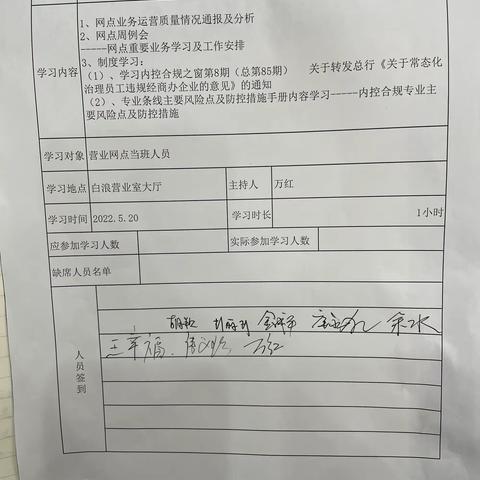 1、网点业务运营质量情况通报及分析
2、网点周例会
-----网点重要业务学习及工作安排
3、制度学习：
学习内容
（1）、学习内控合规之窗第8期（总第85期） 关于转发总行《关于常态化
治理员工违规经商办企业的意见》的通知
（2）、专业条线主要风险点及防控措施手册内容学习-----内控合规专业主
要风险点及防控措施
学习对象 营业网点当班人员
学习地点 白浪营业室大厅 主持人 万红
学习时间 2022.5.20 学习时长 1小时
应参加学习人数 实际参加学习人数
缺席人员名单
人员签到
王幸福 万红